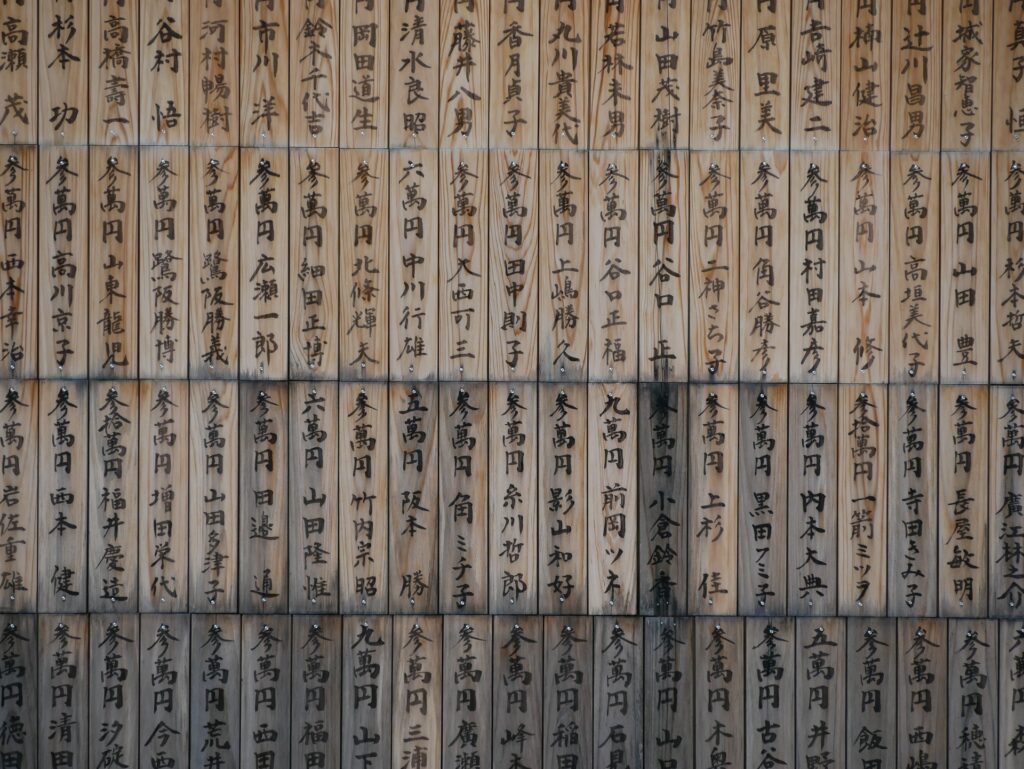 真子 恒
城家智恵子
辻川昌男
楠山健治
吉崎建二
原 里美
竹島美奈子
山田茂樹
若林末男
九川貴美代
香月貞子
藤井八男
清水良昭
岡田道生
鈴木千代吉
市川 洋
河村暢樹
谷村 悟
高橋壽一
杉本 功
高瀬 茂
参萬円 杉本哲夫
参萬円 山田 豊
参萬円 高垣美代子
参萬円 山本 修
参萬円 村田嘉彦
参萬円 角谷勝彦
参萬円 二神さち子
参萬円 谷口 正
参萬円 谷口正福
参萬円 上嶋勝久
参萬円 田中則子
参萬円 大西可三
六萬円 中川行雄
参萬円 北條輝夫
参萬円 細田正博
参萬円 広瀬一郎
参萬円 鷺阪勝義
参萬円 鷺阪勝博
参萬円 山東龍児
参萬円 高川京子
参萬円 西本幸治
参萬円 廣江林之介
参萬円 長屋敏明
参萬円 寺田きみ子
参拾萬円 一箭ミツヲ
参萬円 内本大典
参萬円 黒田フミ子
参萬円 上杉 佳
参萬円 小倉鈴香
九萬円 前岡ツネ
参萬円 影山和好
参萬円 糸川哲郎
参萬円 角 ミチ子
五萬円 阪本 勝
参萬円 竹内宗昭
六萬円 山田隆惟
参萬円 田邉 通
参萬円 山田多津子
参萬円 増田栄代
参拾萬円 福井慶造
参萬円 西本 健
参萬円 岩佐重雄
六萬円 森
参萬円 穂積
参萬円 西嶋
参萬円 飯田
五萬円 井野
参萬円 古谷
参萬円 木奥
参萬円 山口
参萬円 石見
参萬円 稲田
参萬円 峰本
参萬円 廣瀬
参萬円 三浦
九萬円 山下
参萬円 福田
参萬円 西田
参萬円 荒井
参萬円 今西
参萬円 汐碇
参萬円 清田
参萬円 徳田